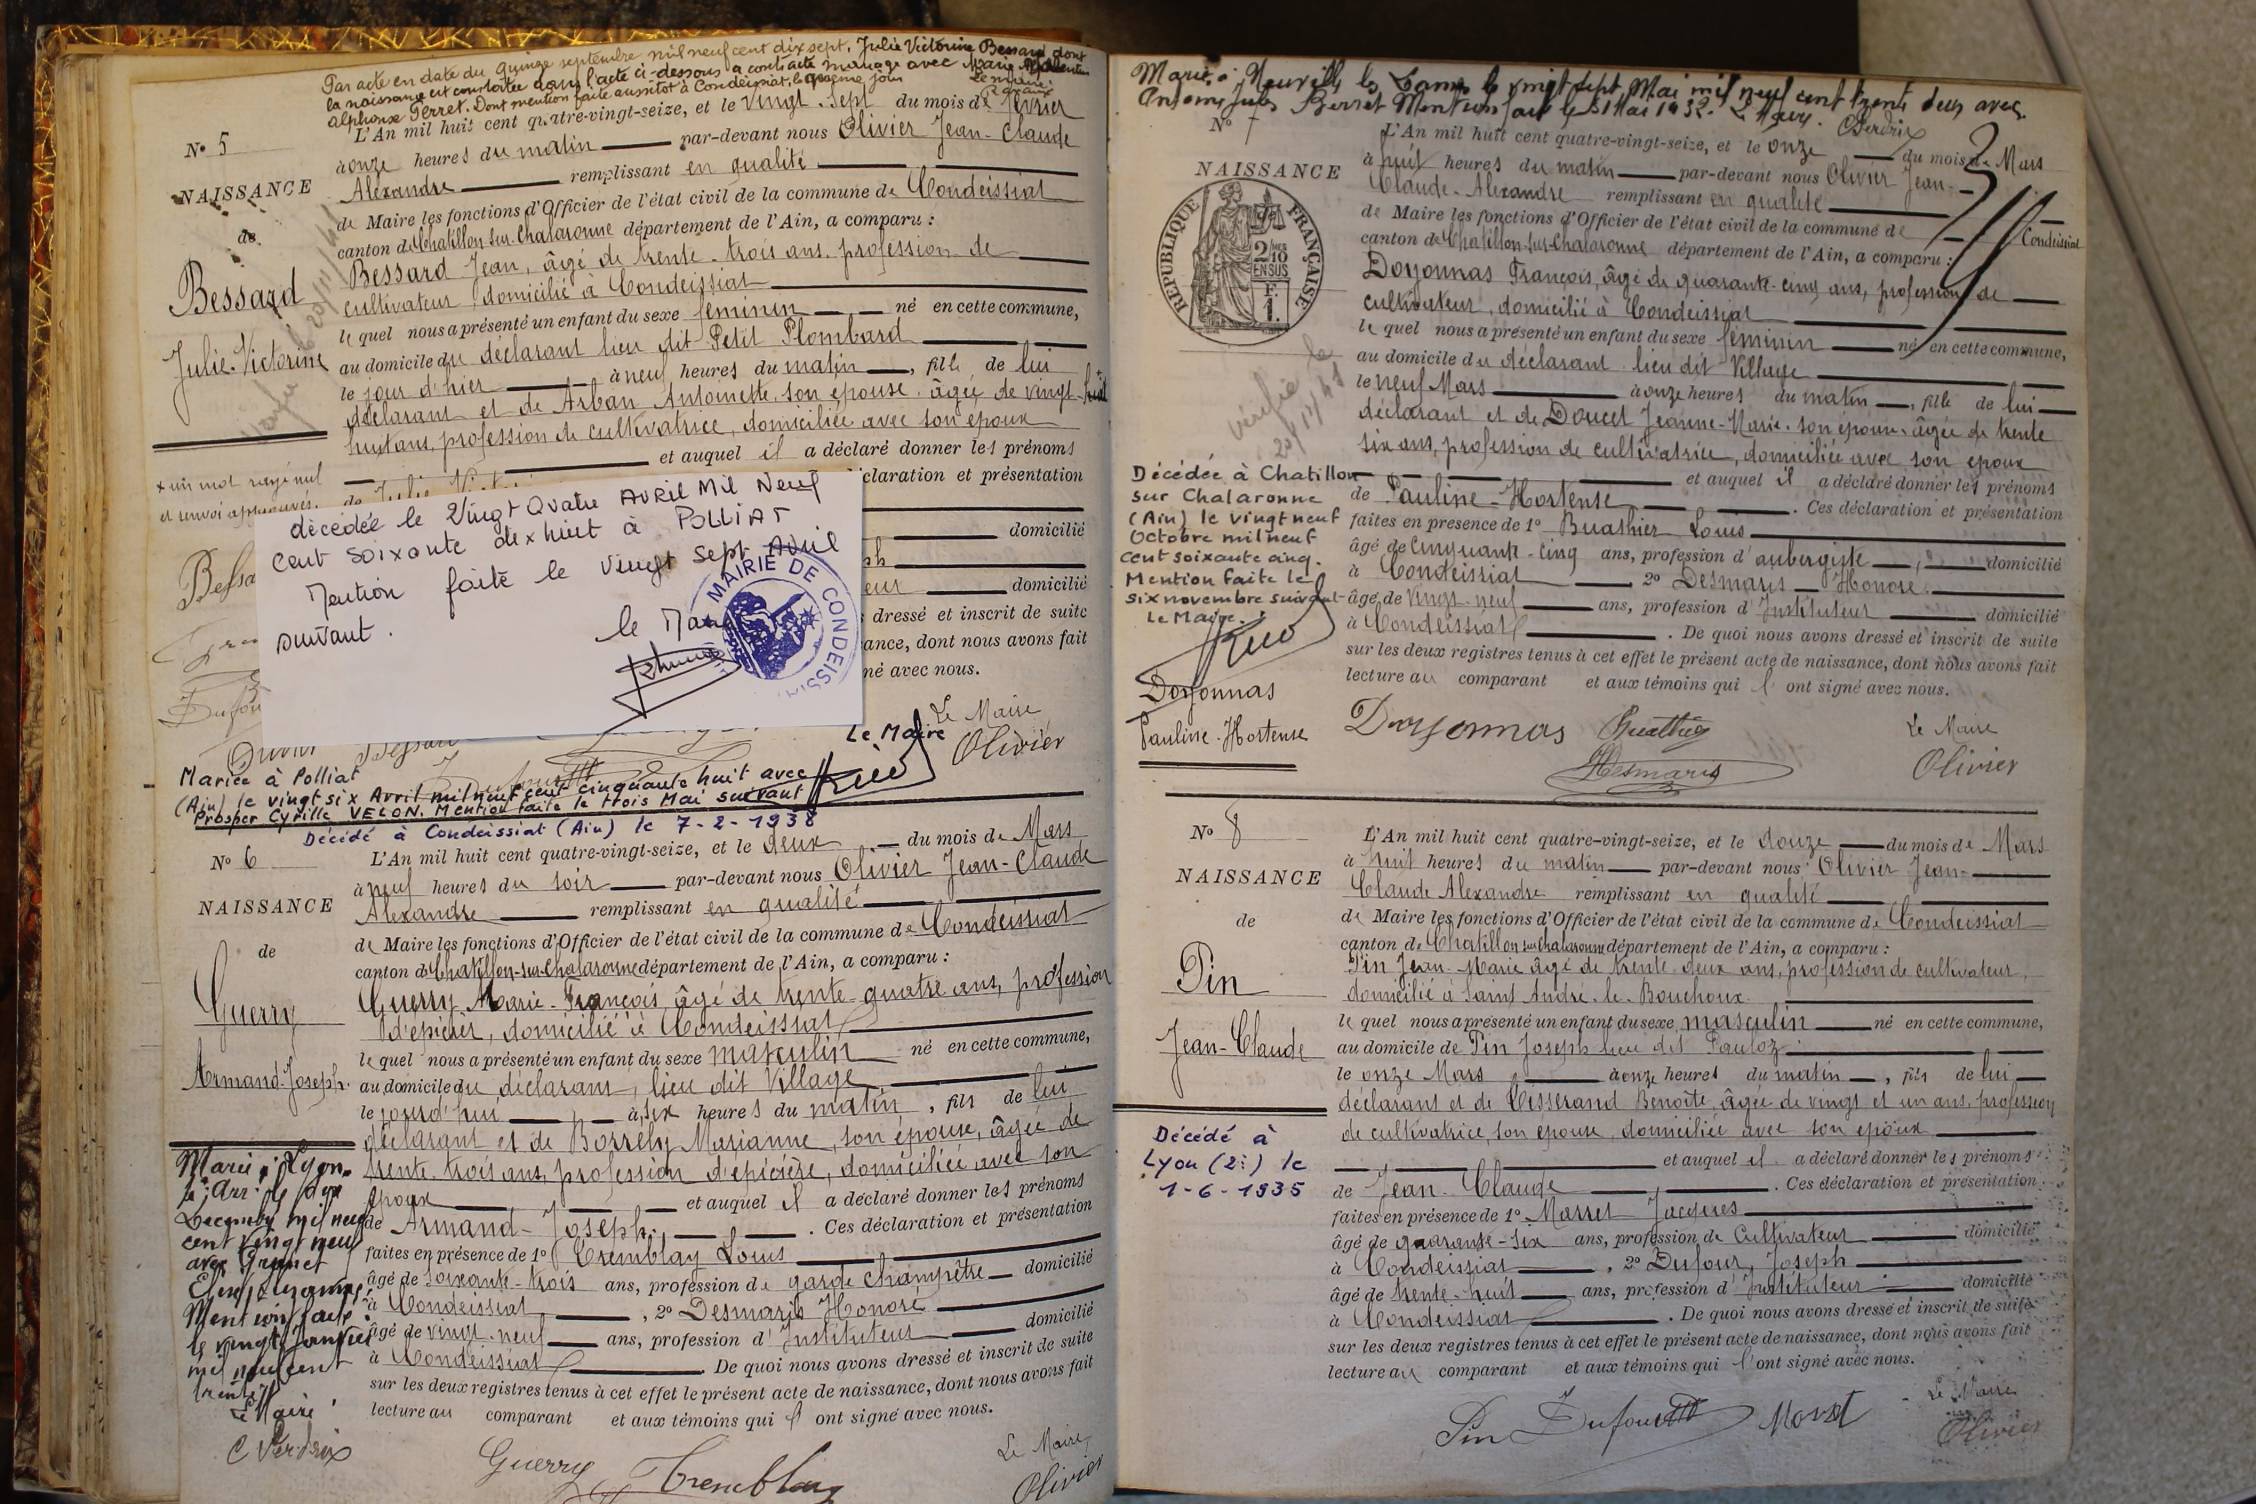 Par acte en date du quinze septembre mil neuf cent dix sept, Julie Victorine Bessard dont
la naissance est constatée dans l'acte ci-dessous a contracté mariage avec Marie
Alphonse Perret. Dont mention faite aussitôt à Condeissiat, le quinzième jour
Le maire
N° 5
NAISSANCE
de
Bessard
Julie-Victorine
L'An mil huit cent quatre-vingt-seize, et le vingt-sept du mois de février
à onze heures du matin par-devant nous Olivier Jean-Claude
Alexandre remplissant en qualité
de Maire les fonctions d'Officier de l'état civil de la commune de Condeissiat
canton de Chatillon-sur-Chalaronne département de l'Ain, a comparu :
Bessard Jean, âgé de trente-trois ans, profession de
cultivateur domicilié à Condeissiat
le quel nous a présenté un enfant du sexe féminin né en cette commune,
au domicile du déclarant lieu dit Petit Plombard
le jour d'hier à neuf heures du matin, fille de lui
déclarant et de Arban Antoinette son épouse, âgée de vingt-huit
huit ans, profession de cultivatrice, domiciliée avec son époux
et auquel il a déclaré donner les prénoms
x un mot rayé nul
et renvoi approuvés.
déclaration et présentation
domicilié
domicilié
dressé et inscrit de suite
ance, dont nous avons fait
né avec nous.
décédée le Vingt Quatre Avril Mil Neuf
Cent soixante dix huit à POLLIAT
Mention faite le vingt sept Avril
suivant.
le Maire
MAIRIE DE CONDEISSIAT
Le Maire
Olivier
Le Maire
Mariée à Polliat
(Ain) le vingt six Avril mil neuf cent cinquante huit avec
Prosper Cyrille VELON. Mention faite le trois Mai suivant
Décédé à Condeissiat (Ain) le 7-2-1938
N° 6
NAISSANCE
de
Guerry
Armand-Joseph.
L'An mil huit cent quatre-vingt-seize, et le deux du mois de Mars
à neuf heures du soir par-devant nous Olivier Jean-Claude
Alexandre remplissant en qualité
de Maire les fonctions d'Officier de l'état civil de la commune de Condeissiat
canton de Chatillon-sur-Chalaronne département de l'Ain, a comparu :
Guerry Marie-François âgé de trente-quatre ans, profession
d'épicier, domicilié à Condeissiat
le quel nous a présenté un enfant du sexe masculin né en cette commune,
au domicile du déclarant, lieu dit Village
le jourd'hui à six heures du matin, fils de lui
déclarant et de Borrely Marianne, son épouse, âgée de
trente-trois ans, profession d'épicière, domiciliée avec son
époux et auquel il a déclaré donner les prénoms
de Armand-Joseph. Ces déclaration et présentation
faites en présence de 1° Tremblay Louis
âgé de soixante-trois ans, profession de garde champêtre domicilié
à Condeissiat, 2° Desmaris Honoré
âgé de vingt-neuf ans, profession d'Instituteur domicilié
à Condeissiat. De quoi nous avons dressé et inscrit de suite
sur les deux registres tenus à cet effet le présent acte de naissance, dont nous avons fait
lecture au comparant et aux témoins qui l'ont signé avec nous.
Marié à Lyon
Arr. le dix
Décembre mil neuf
cent vingt neuf
avec Grunet
Mention faite
le vingt Janvier
mil neuf cent
trente
Le Maire
C Verdrix
Guerry
Tremblay
Le Maire
Olivier
Mariée à Neuville les Dames le vingt sept Mai mil neuf cent trente deux avec
Antoine Jules Berret Mention faite le 31 Mai 1932. Le Maire. C Verdrix
N° 7
NAISSANCE
de
RÉPUBLIQUE FRANÇAISE
2/10 EN SUS
F.
1.
L'An mil huit cent quatre-vingt-seize, et le onze du mois de Mars
à huit heures du matin par-devant nous Olivier Jean-
Claude-Alexandre remplissant en qualité
de Maire les fonctions d'Officier de l'état civil de la commune de Condeissiat
canton de Chatillon-sur-Chalaronne département de l'Ain, a comparu :
Doyonnas François âgé de quarante-cinq ans, profession de
cultivateur, domicilié à Condeissiat
le quel nous a présenté un enfant du sexe féminin né en cette commune,
au domicile du déclarant lieu dit Village
le neuf Mars à onze heures du matin, fille de lui
déclarant et de Doucet Jeanne-Marie, son épouse, âgée de trente
six ans, profession de cultivatrice, domiciliée avec son époux
et auquel il a déclaré donner les prénoms
de Pauline-Hortense. Ces déclaration et présentation
faites en présence de 1° Buathier Louis
âgé de cinquante-cinq ans, profession d'aubergiste, domicilié
à Condeissiat 2° Desmaris Honoré
âgé de vingt-neuf ans, profession d'Instituteur domicilié
à Condeissiat. De quoi nous avons dressé et inscrit de suite
sur les deux registres tenus à cet effet le présent acte de naissance, dont nous avons fait
lecture au comparant et aux témoins qui l'ont signé avec nous.
vérifié le
Décédée à Chatillon
sur Chalaronne
(Ain) le vingt neuf
Octobre mil neuf
cent soixante cinq.
Mention faite le
six novembre suivant
Le Maire.
Doyonnas
Pauline-Hortense
Doyonnas Buathier
Desmaris
Le Maire
Olivier
N° 8
NAISSANCE
de
Pin
Jean-Claude
L'An mil huit cent quatre-vingt-seize, et le douze du mois de Mars
à huit heures du matin par-devant nous Olivier Jean-
Claude Alexandre remplissant en qualité
de Maire les fonctions d'Officier de l'état civil de la commune de Condeissiat
canton de Chatillon sur Chalaronne département de l'Ain, a comparu :
Pin Jean-Marie âgé de trente-deux ans, profession de cultivateur,
domicilié à Saint André-le-Bouchoux
le quel nous a présenté un enfant du sexe masculin né en cette commune,
au domicile de Pin Joseph lieu dit Pauloz
le onze Mars à onze heures du matin, fils de lui
déclarant et de Tisserand Benoîte, âgée de vingt et un ans, profession
de cultivatrice, son épouse, domiciliée avec son époux
et auquel il a déclaré donner les prénoms
de Jean-Claude. Ces déclaration et présentation
faites en présence de 1° Morret Jacques
âgé de quarante-six ans, profession de Cultivateur domicilié
à Condeissiat, 2° Dufour Joseph
âgé de trente-huit ans, profession d'Instituteur domicilié
à Condeissiat. De quoi nous avons dressé et inscrit de suite
sur les deux registres tenus à cet effet le présent acte de naissance, dont nous avons fait
lecture au comparant et aux témoins qui l'ont signé avec nous.
Décédé à
Lyon (2e) le
1-6-1935
Pin Dufour
Le Maire
Olivier